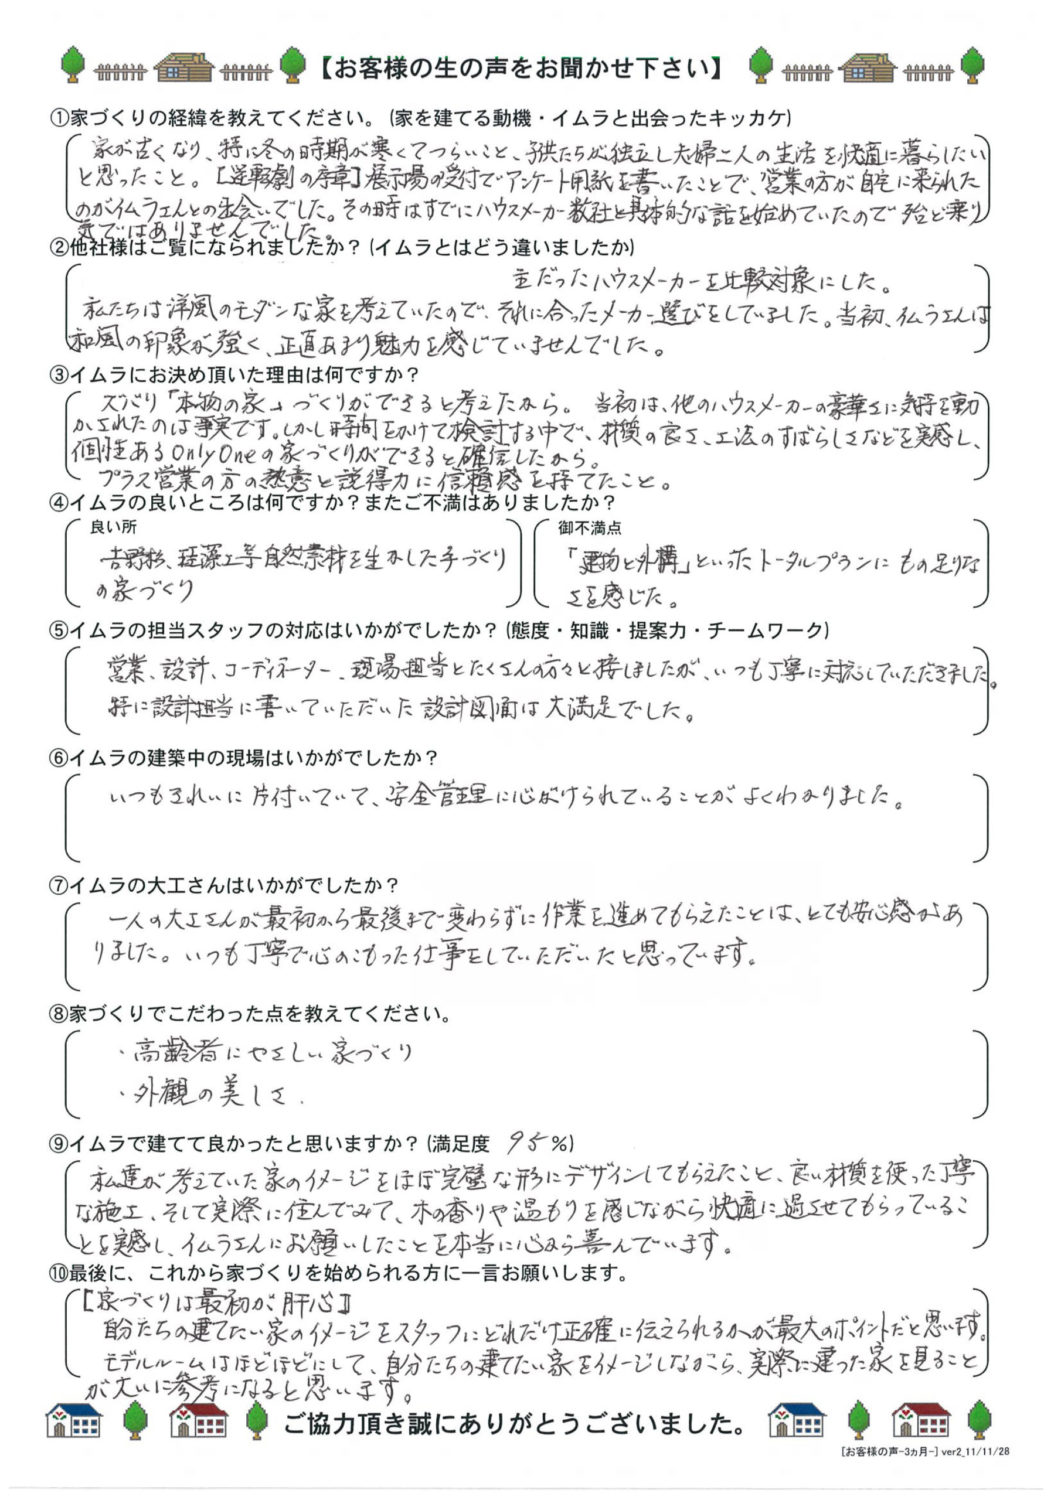 【お客様の生の声をお聞かせ下さい】
①家づくりの経緯を教えてください。(家を建てる動機・イムラと出会ったキッカケ)
家が古くなり、特に冬の時期が寒くてつらいこと、子供たちが独立し夫婦二人の生活を快適に暮らしたい
と思ったこと。【逆転劇の序章】展示場の受付でアンケート用紙を書いたことで、営業の方が自宅に来られた
のがイムラさんとの出会いでした。その時はすでにハウスメーカー数社と具体的な話を始めていたので殆ど乗り
気ではありませんでした。
②他社様はご覧になられましたか?(イムラとはどう違いましたか)
主だったハウスメーカーを比較対象にした。
私たちは洋風のモダンな家を考えていたので、それに合ったメーカー選びをしていました。当初、イムラさんは
和風の印象が強く、正直あまり魅力を感じていませんでした。
③イムラにお決め頂いた理由は何ですか?
ズバリ「本物の家」づくりができると考えたから。 当初は、他のハウスメーカーの豪華さに気持を動
かされたのは事実です。しかし時間をかけて検討する中で、材質の良さ、工法のすばらしさなどを実感し、
個性あるOnly Oneの家づくりができると確信したから。
プラス営業の方の熱意と説得力に信頼感を持てたこと。
④イムラの良いところは何ですか?またご不満はありましたか?
良い所
吉野杉、珪藻土等自然素材を生かした手づくり
の家づくり
御不満点
「建物と外構」といったトータルプランにもの足りな
さを感じた。
⑤イムラの担当スタッフの対応はいかがでしたか?(態度・知識・提案力・チームワーク)
営業、設計、コーディネーター、現場担当とたくさんの方々と接しましたが、いつも丁寧に対応していただきました。
特に設計担当に書いていただいた設計図面は大満足でした。
⑥イムラの建築中の現場はいかがでしたか?
いつもきれいに片付いていて、安全管理に心がけられていることがよくわかりました。
⑦イムラの大工さんはいかがでしたか?
一人の大工さんが最初から最後まで変わらずに作業を進めてもらえたことは、とても安心感があ
りました。いつも丁寧で心のこもった仕事をしていただいたと思っています。
⑧家づくりでこだわった点を教えてください。
・高齢者にやさしい家づくり
・外観の美しさ.
⑨イムラで建てて良かったと思いますか?(満足度 95%)
私達が考えていた家のイメージをほぼ完璧な形にデザインしてもらえたこと、良い材質を使った丁寧
な施工、そして実際に住んでみて、木の香りや温もりを感じながら快適に過させてもらっているこ
とを実感し、イムラさんにお願いしたことを本当に心から喜んでいます。
⑩最後に、これから家づくりを始められる方に一言お願いします。
【家づくりは最初が肝心】
自分たちの建てたい家のイメージをスタッフにどれだけ正確に伝えられるかが最大のポイントだと思います。
モデルルームはほどほどにして、自分たちの建てたい家をイメージしながら、実際に建った家を見ること
が大いに参考になると思います。
ご協力頂き誠にありがとうございました。
[お客様の声-3ヵ月-] ver2_11/11/28